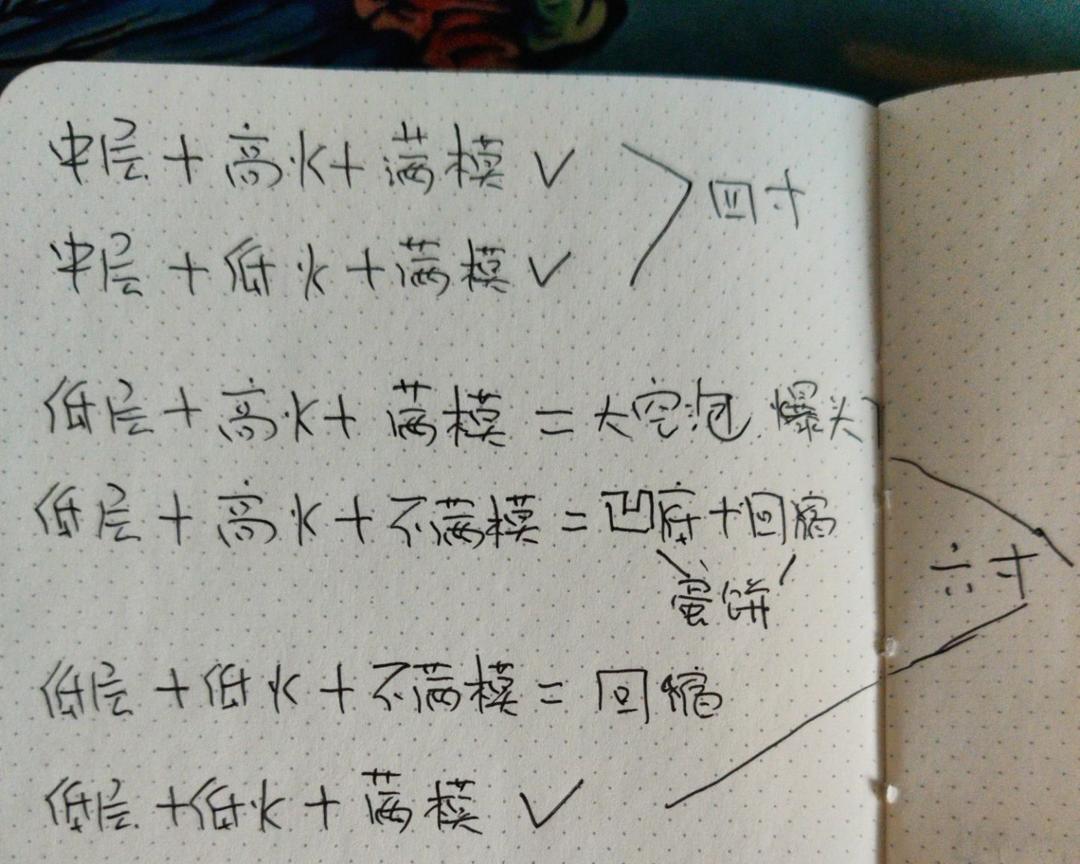 中层+高火+满模✓
四寸
中层+低火+满模✓
低层+高火+满模=大空泡 爆头
低层+高火+不满模=凹底+回缩
六寸
蛋饼
低层+低火+不满模=回缩
低层+低火+满模✓